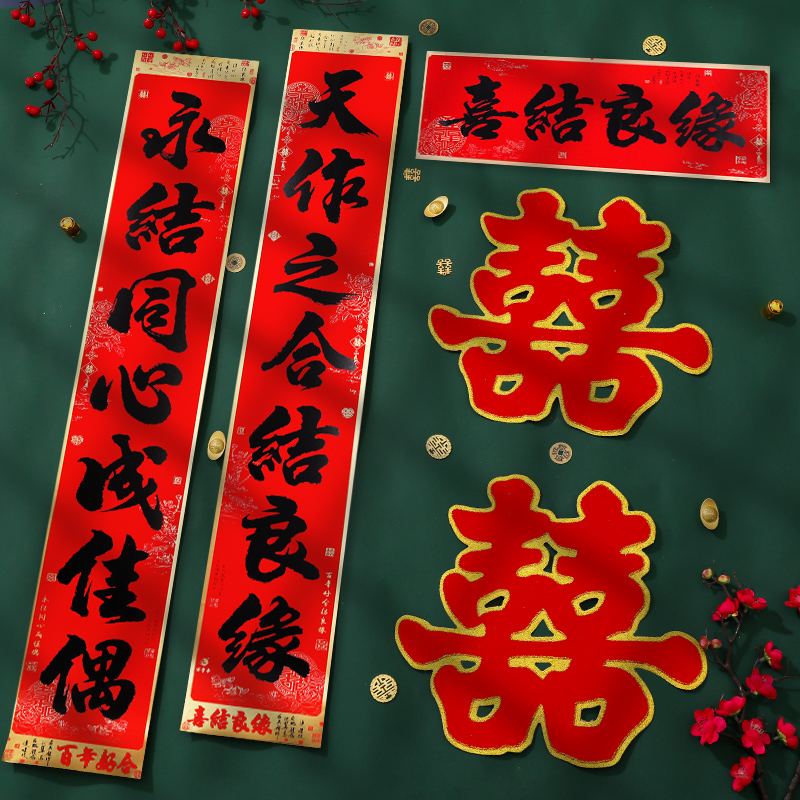 喜結良緣
天佑之合結良緣
喜結良緣
永結同心成佳偶
百年好合
囍
囍